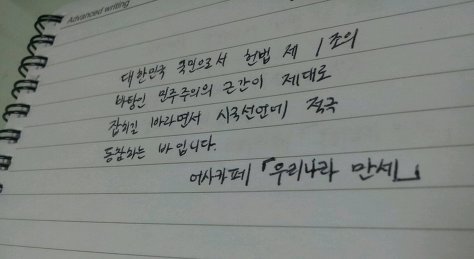 Advanced writing
대한민국 국민으로서 헌법 제 1조의
바탕인 민주주의의 근간이 제대로
잡히길 바라면서 시국선언에 적극
동참하는 바입니다.
여사카페 「우리나라 만세」